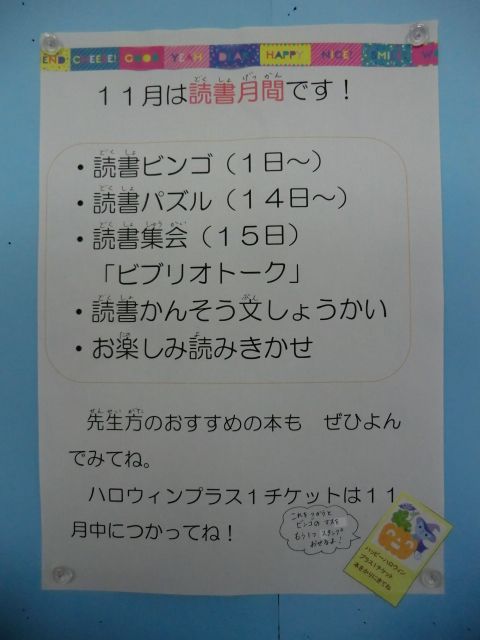 END CHEESE! GOOD YEAH DAY HAPPY NICE! SMILE
１１月は読書月間です！
・読書ビンゴ（１日～）
・読書パズル（１４日～）
・読書集会（１５日）
「ビブリオトーク」
・読書かんそう文しょうかい
・お楽しみ読みきかせ
先生方のおすすめの本も　ぜひよん
でみてね。
ハロウィンプラス１チケットは１１
月中につかってね！
これをつかうと
ビンゴのマスを
もう1つ スタンプ
おせるよ！
ハッピーハロウィン
プラス1チケット
本をかりにきてね